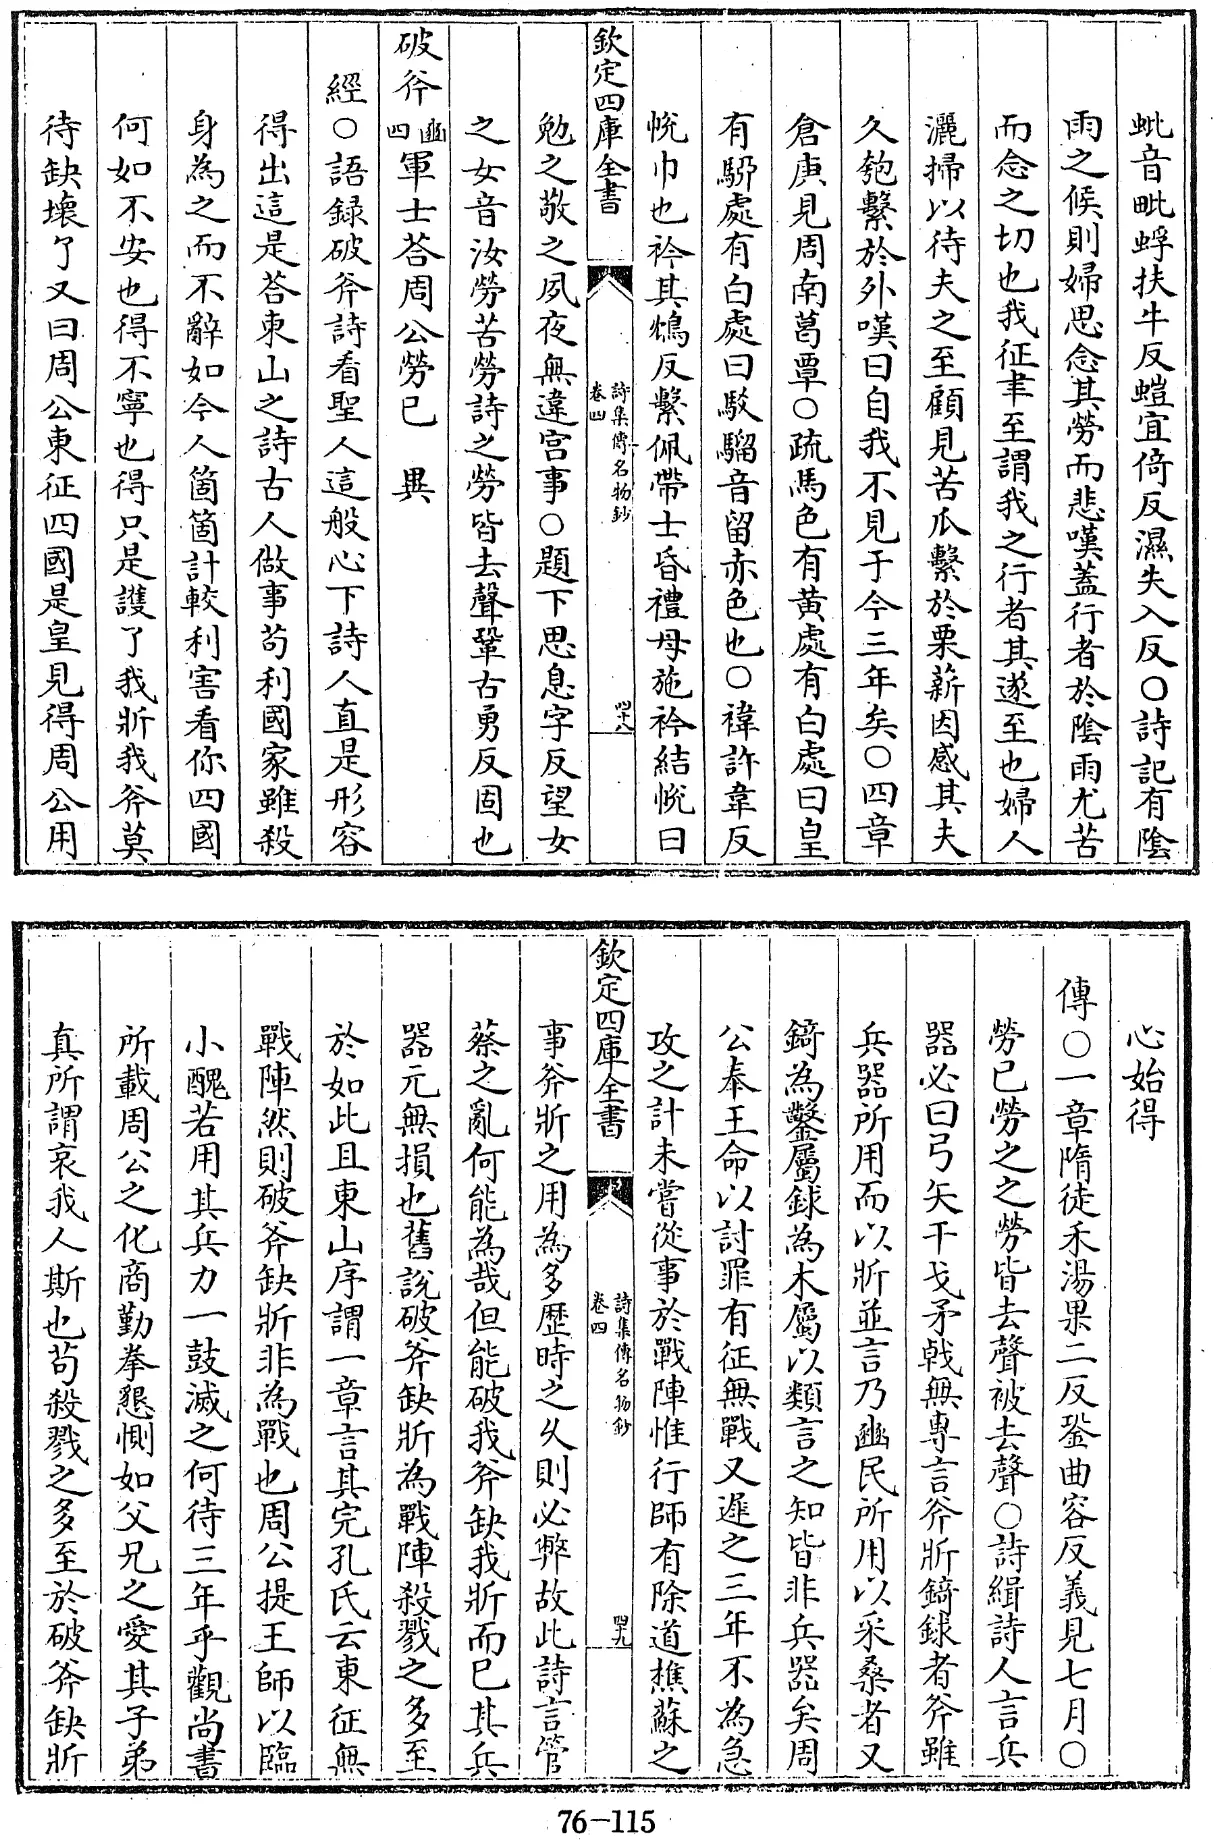 蚍音毗蜉扶牛反螘宜倚反濕失入反○詩記有陰
雨之候則婦思念其勞而悲嘆蓋行者於陰雨尤苦
而念之切也我征聿至謂我之行者其遂至也婦人
灑掃以待夫之至顧見苦瓜繫於栗薪因感其夫
久匏繫於外嘆曰自我不見于今三年矣○四章
倉庚見周南葛覃○疏馬色有黄處有白處曰皇
有騂處有白處曰駁騮音留赤色也○褘許韋反
帨巾也衿其鴆反繫佩帶士昏禮母施衿結帨曰
欽定四庫全書
詩集傳名物鈔
卷四
四十八
勉之敬之夙夜無違宫事○題下思息字反望女
之女音汝勞苦勞詩之勞皆去聲鞏古勇反固也
破斧豳四軍士荅周公勞已 興
經○語録破斧詩看聖人這般心下詩人直是形容
得出這是荅東山之詩古人做事苟利國家雖殺
身為之而不辭如今人箇箇計較利害看你四國
何如不安也得不寧也得只是護了我斨我斧莫
待缺壞了又曰周公東征四國是皇見得周公用
心始得
傳○一章隋徒禾湯果二反銎曲容反義見七月○
勞已勞之之勞皆去聲被去聲○詩緝詩人言兵
器必曰弓矢干戈矛戟無專言斧斨錡銶者斧雖
兵器所用而以斨並言乃豳民所用以采桑者又
錡為鑿屬銶為木屬以類言之知皆非兵器矣周
公奉王命以討罪有征無戰又遲之三年不為急
攻之計未嘗從事於戰陣惟行師有除道樵蘇之
欽定四庫全書
詩集傳名物鈔
卷四
四十九
事斧斨之用為多歴時之久則必弊故此詩言管
蔡之亂何能為哉但能破我斧缺我斨而已其兵
器元無損也舊説破斧缺斨為戰陣殺戮之多至
於如此且東山序謂一章言其完孔氏云東征無
戰陣然則破斧缺斨非為戰也周公提王師以臨
小醜若用其兵力一鼓滅之何待三年乎觀尚書
所載周公之化商勤拳懇惻如父兄之愛其子弟
真所謂哀我人斯也苟殺戮之多至於破斧缺斨
76-115